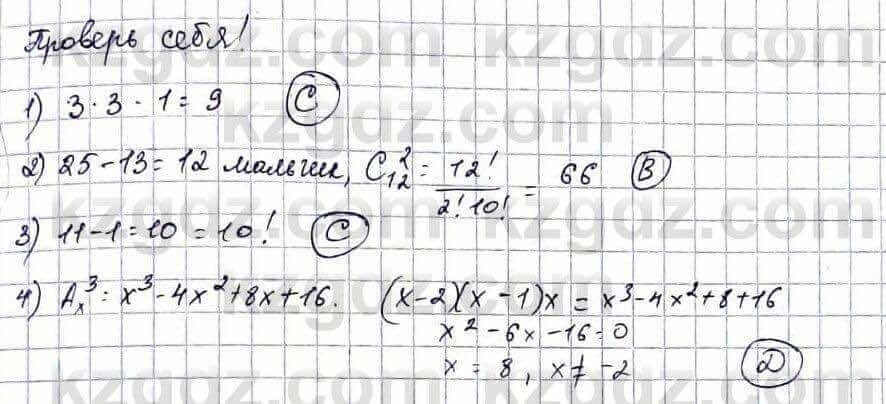 Проверь себя!
1) 3 · 3 · 1 = 9 C
2) 25 - 13 = 12 мальчик, C₁₂² = 12! / 2! 10! = 66 B
3) 11 - 1 = 10 = 10! C
4) Aₓ³ = x³ - 4x² + 8x + 16. (x - 2)(x - 1)x = x³ - 4x² + 8 + 16
x² - 6x - 16 = 0
x = 8, x ≠ -2 D
kzgdz.com